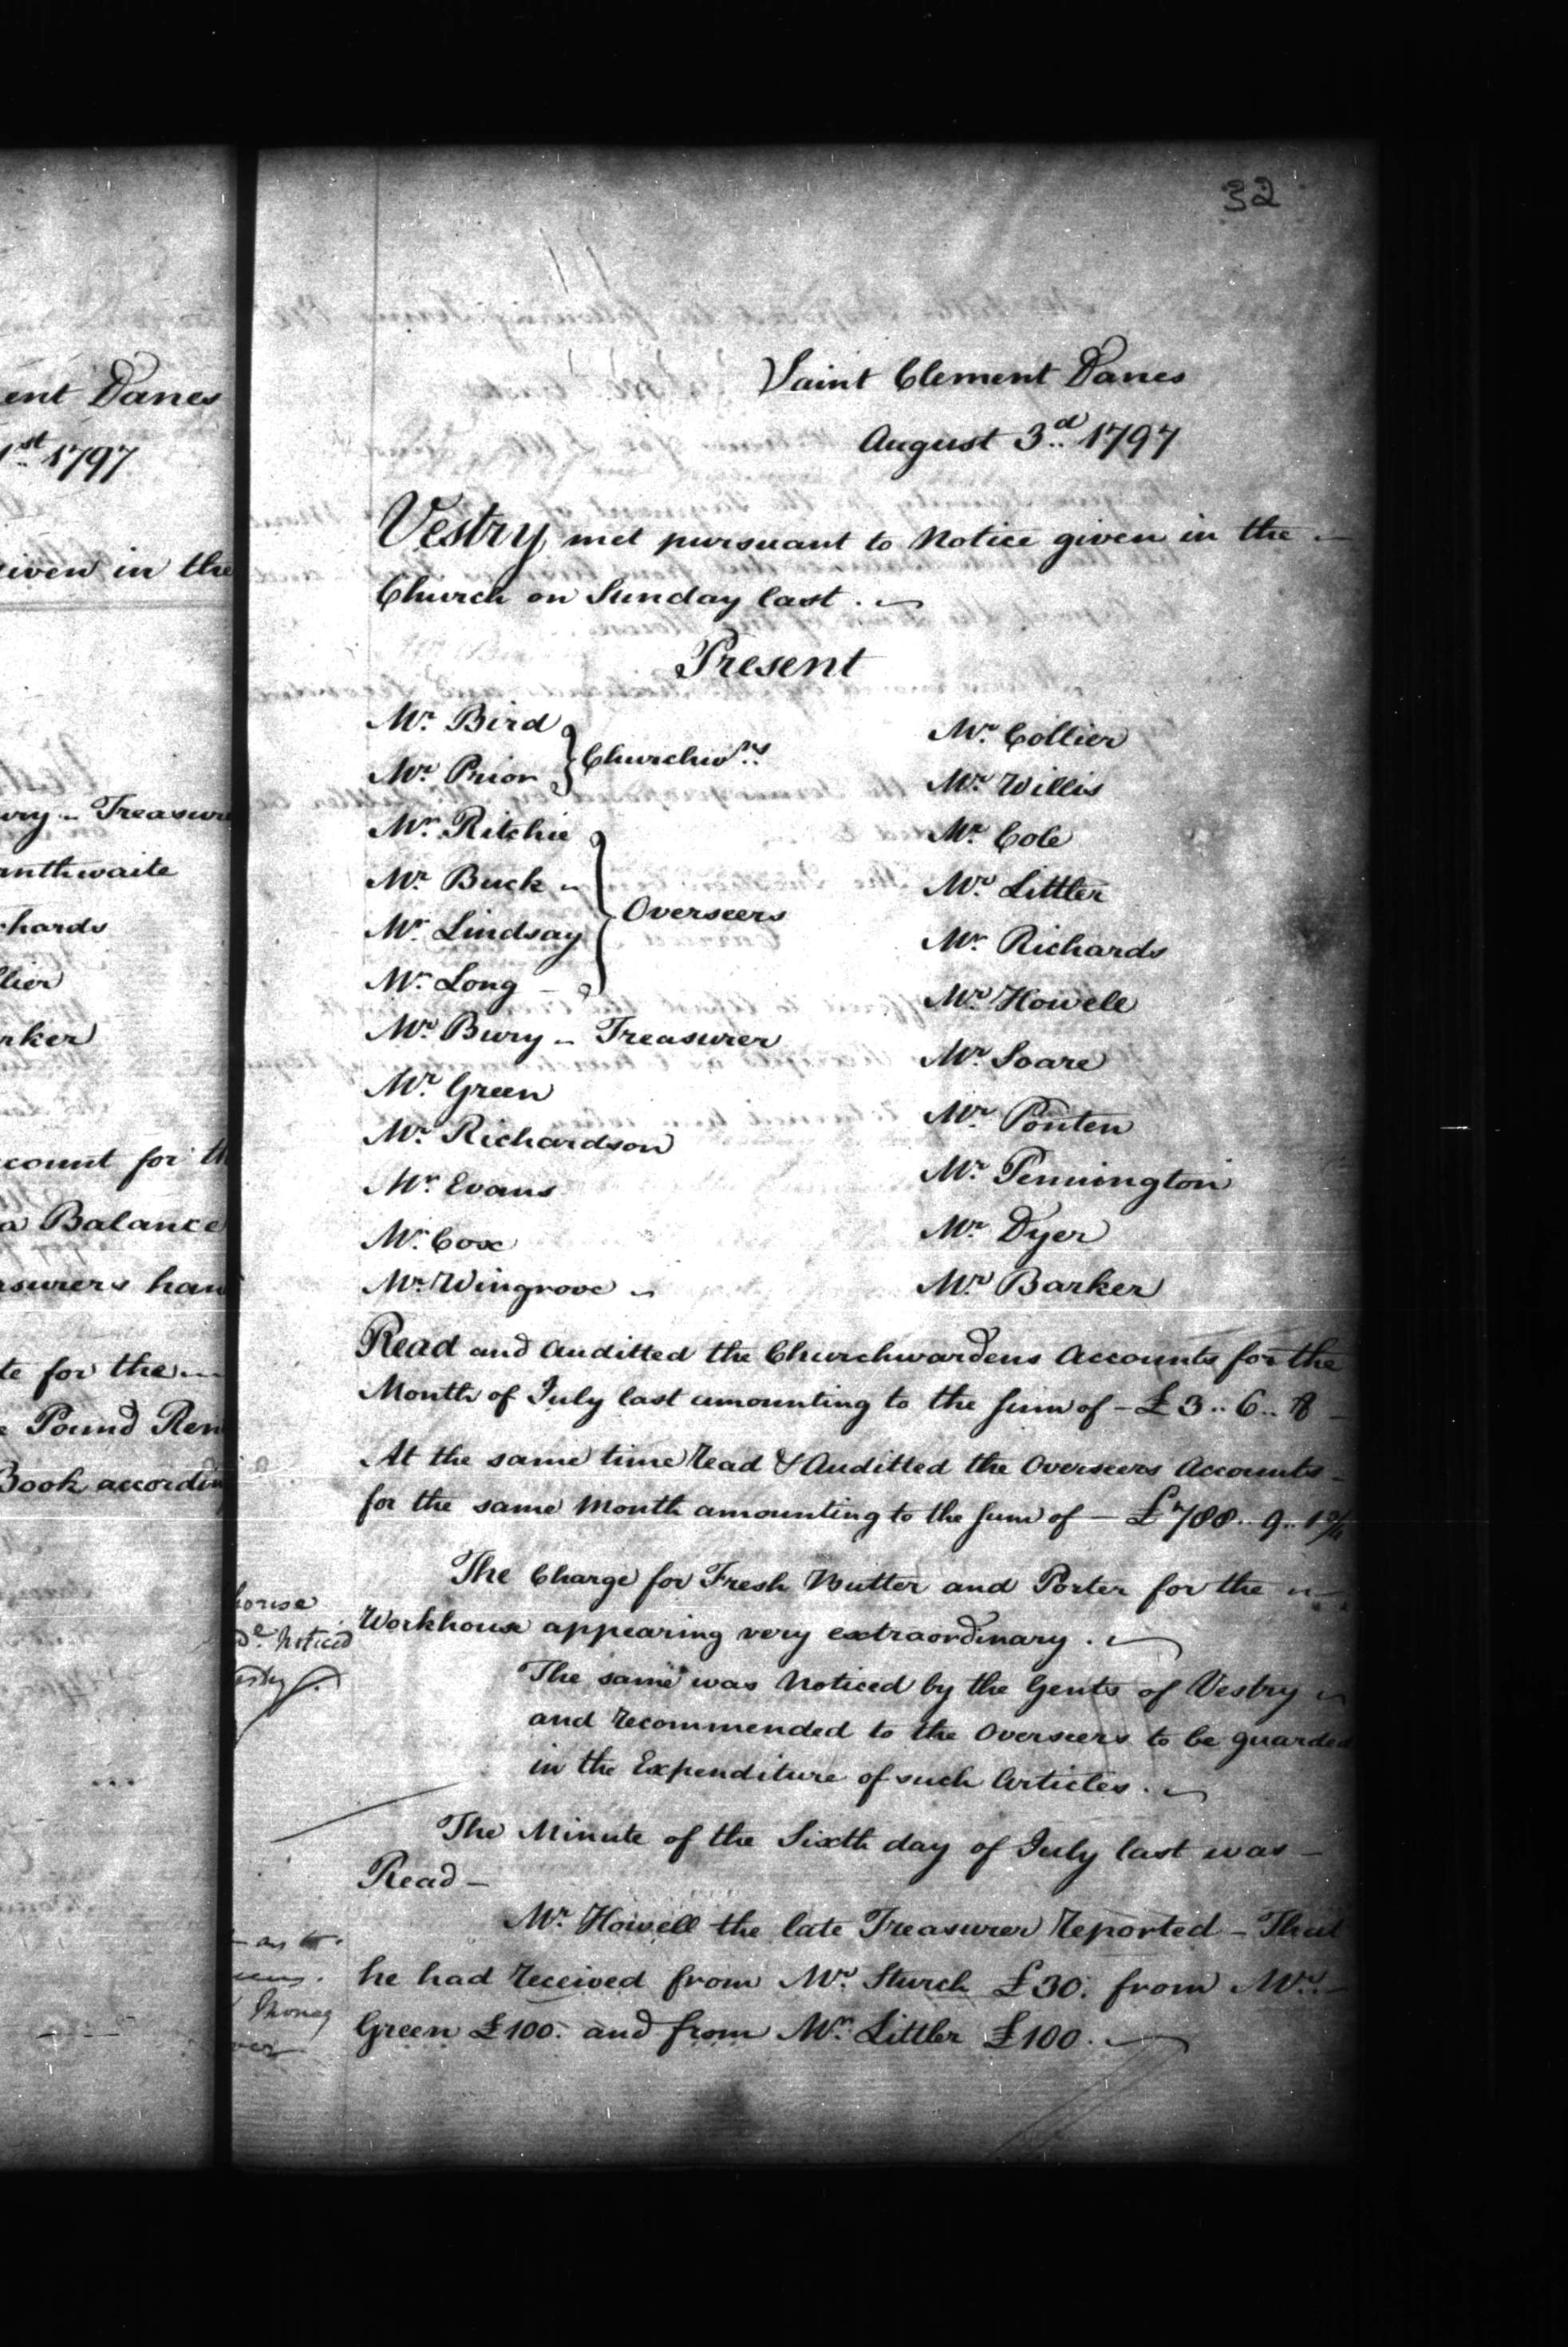 32
ent Danes
1st 1797
iven in the
ury - Treasure
anthwaite
chards
llier
rker
count for th
a Balance
asurers han
te for the
e Pound Ren
Book accordin
house
de. Noticed
Saint Clement Danes
August 3d. 1797
Vestry met pursuant to Notice given in the
Church on Sunday last.
Present
Mr. Bird
Mr. Prior
Churchwns.
Mr. Ritchie
Mr. Buck
Mr. Lindsay
Mr. Long
Overseers
Mr. Bury - Treasurer
Mr. Green
Mr. Richardson
Mr. Evans
Mr. Cox
Mr. Wingrove
Mr. Collier
Mr. Willis
Mr. Cole
Mr. Littler
Mr. Richards
Mr. Howell
Mr. Soare
Mr. Ponten
Mr. Pennington
Mr. Dyer
Mr. Barker
Read and Auditted the Churchwardens Accounts for the
Month of July last amounting to the Sum of - £3..6..8 -
At the same time Read & Auditted the Overseers Accounts -
for the same Month amounting to the Sum of - £788..9..1
The Charge for Fresh Butter and Porter for the
Workhouse appearing very extraordinary.
The same was Noticed by the Gents of Vestry
and recommended to the Overseers to be guarded
in the Expenditure of such Articles.
The Minute of the Sixth day of July last was -
Read -
Mr. Howell the late Treasurer Reported - That
he had received from Mr. Sturch £30. from Mr. -
Green £100. and from Mr. Littler £100.
Money